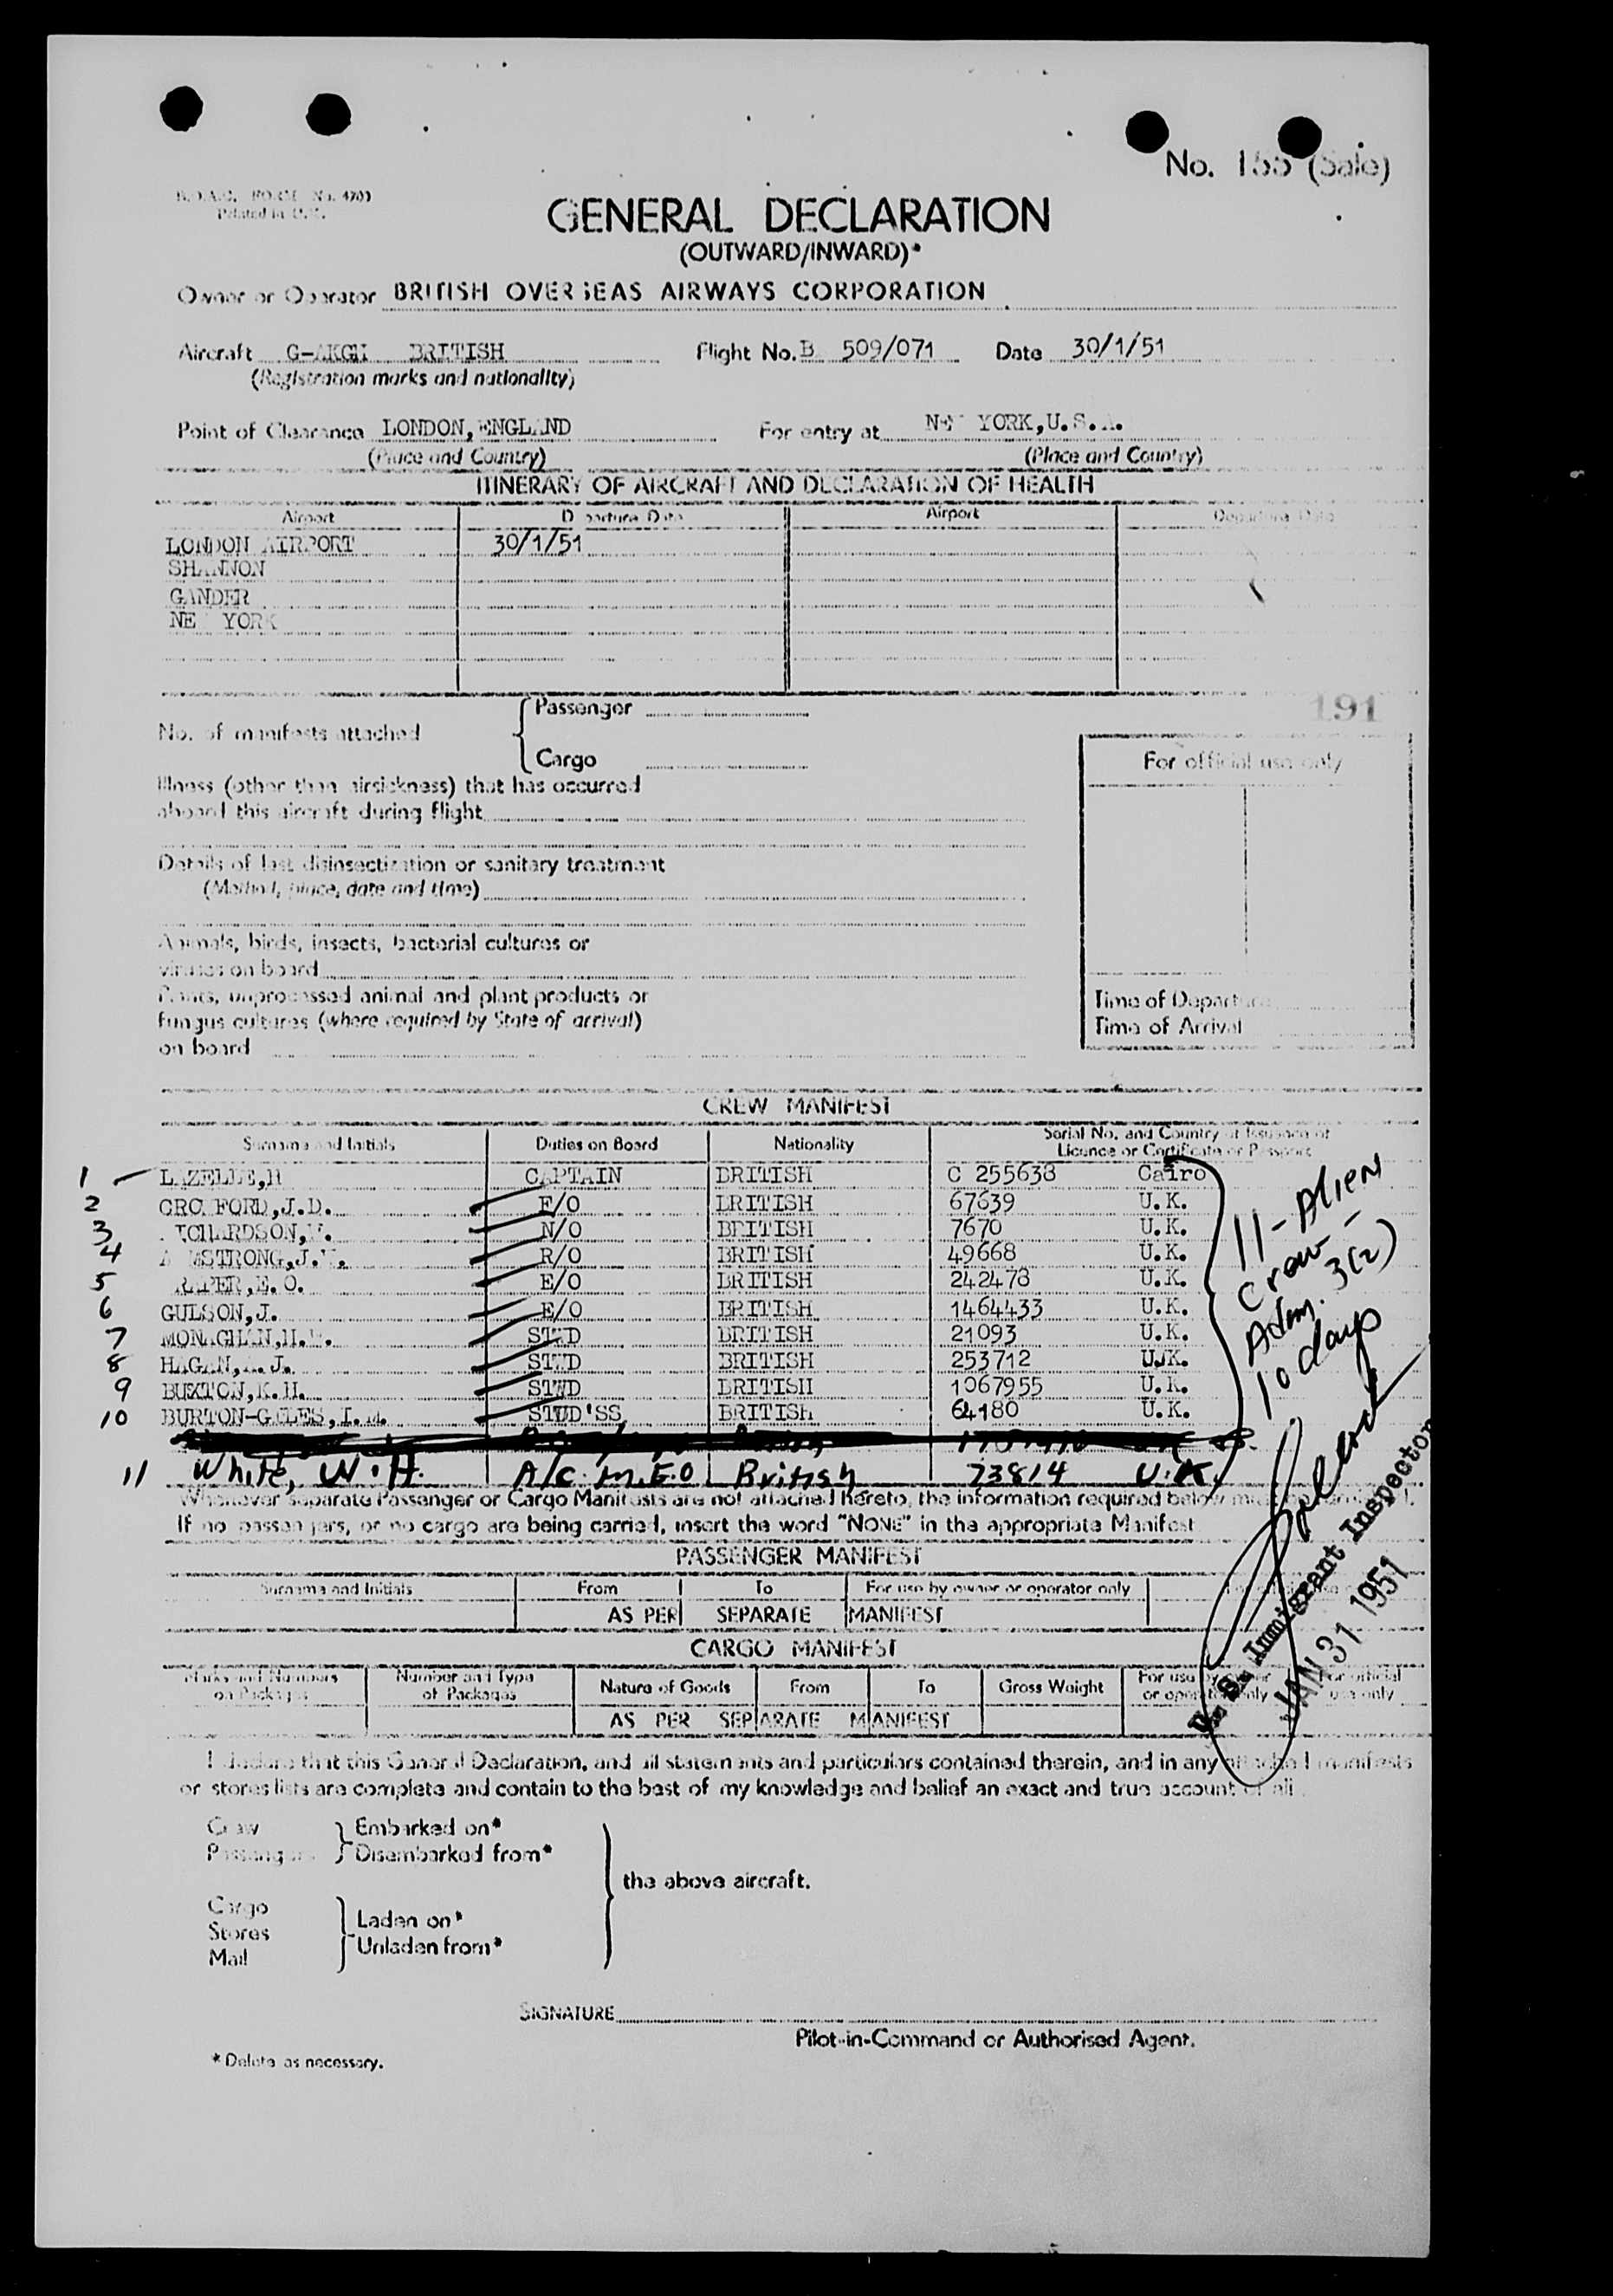 No. 155 (Sale)
B.O.A.C. FORM No. 4703
Printed in U.K.
GENERAL DECLARATION
(OUTWARD/INWARD)*
Owner or Operator BRITISH OVERSEAS AIRWAYS CORPORATION
Aircraft G-AKGH BRITISH Flight No. B 509/071 Date 30/1/51
(Registration marks and nationality)
Point of Clearance LONDON, ENGLAND For entry at NEW YORK, U.S.A.
(Place and Country) (Place and Country)
ITINERARY OF AIRCRAFT AND DECLARATION OF HEALTH
Airport Departure Date Airport Departure Date
LONDON AIRPORT 30/1/51
SHANNON
GANDER
NEW YORK
191
No. of manifests attached { Passenger
Cargo
For official use only
Illness (other than airsickness) that has occurred
aboard this aircraft during flight
Details of last disinsectization or sanitary treatment
(Method, place, date and time)
Animals, birds, insects, bacterial cultures or
viruses on board
Plants, unprocessed animal and plant products or
fungus cultures (where required by State of arrival)
on board
Time of Departure
Time of Arrival
CREW MANIFEST
Surname and Initials Duties on Board Nationality Serial No. and Country of Issuance of
Licence or Certificate or Passport
1 LAZELLE, H CAPTAIN BRITISH C 255638 Cairo
2 CROWFORD, J.D. F/O BRITISH 67639 U.K.
3 RICHARDSON, N/O BRITISH 7670 U.K.
4 ARMSTRONG, J. R/O BRITISH 49668 U.K.
5 DRAPER, E.O. E/O BRITISH 242478 U.K.
6 GULSON, J. E/O BRITISH 1464433 U.K.
7 MONAGHAN, H. STWD BRITISH 21093 U.K.
8 HAGAN, J. STWD BRITISH 253712 U.K.
9 BUXTON, K.H. STWD BRITISH 1067955 U.K.
10 BURTON-GILES, I.M. STWD'SS BRITISH 64180 U.K.
11 White, W.H. A/C. M.E.O British 73814 U.K.
11 - Alien
Crew -
Adm. 3(2)
10 days
U. S. Immigrant Inspector
JAN 31 1951
Whenever separate Passenger or Cargo Manifests are not attached hereto, the information required below must be
If no passengers, or no cargo are being carried, insert the word "NONE" in the appropriate Manifest
PASSENGER MANIFEST
Surname and Initials From To For use by owner or operator only
AS PER SEPARATE MANIFEST
CARGO MANIFEST
Marks and Numbers on Packages Number and Type of Packages Nature of Goods From To Gross Weight For use by owner or operator only For official use only
AS PER SEPARATE MANIFEST
I declare that this General Declaration, and all statements and particulars contained therein, and in any attached manifests
or stores lists are complete and contain to the best of my knowledge and belief an exact and true account of all
Crew } Embarked on*
Passengers } Disembarked from*
the above aircraft.
Cargo
Stores } Laden on*
Mail } Unladen from*
SIGNATURE
Pilot-in-Command or Authorised Agent.
* Delete as necessary.